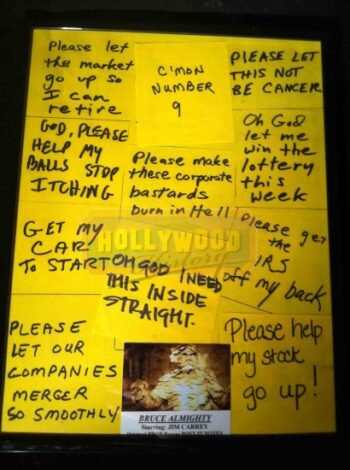 Please let
the market
go up so
I can
retire
C'MON
NUMBER
9
PLEASE LET
THIS NOT
BE CANCER
GOD, PLEASE
HELP MY
BALLS STOP
ITCHING
Please make
these corporate
bastards
burn in Hell
Oh God
let me
win the
lottery
this
week
GET MY
CAR
TO START
HOLLYWOOD
History
OH GOD I NEED
THIS INSIDE
STRAIGHT.
Please get
the
IRS
off my back
PLEASE
LET OUR
COMPANIES
MERGER
GO SMOOTHLY
BRUCE ALMIGHTY
Starring: JIM CARREY
POST-IT NOTES
Please help
my stock
go up!